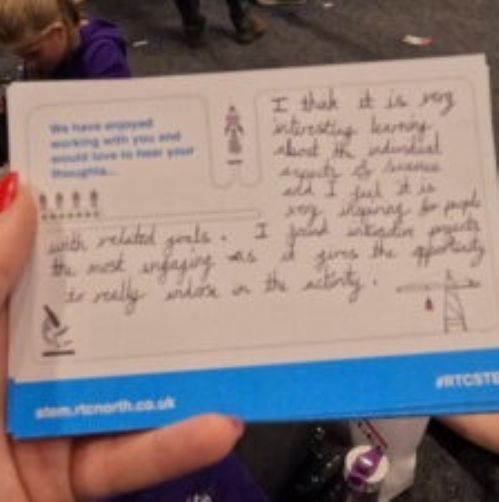 We have enjoyed
working with you and
would love to hear your
thoughts...
I think it is very
interesting learning
about the individual
aspects of science
and I feel it is
very inspiring for people
with related goals. I found interactive projects
the most engaging as it gives the opportunity
to really indose in the activity.
stem.rtcnorth.co.uk
#RTCSTE